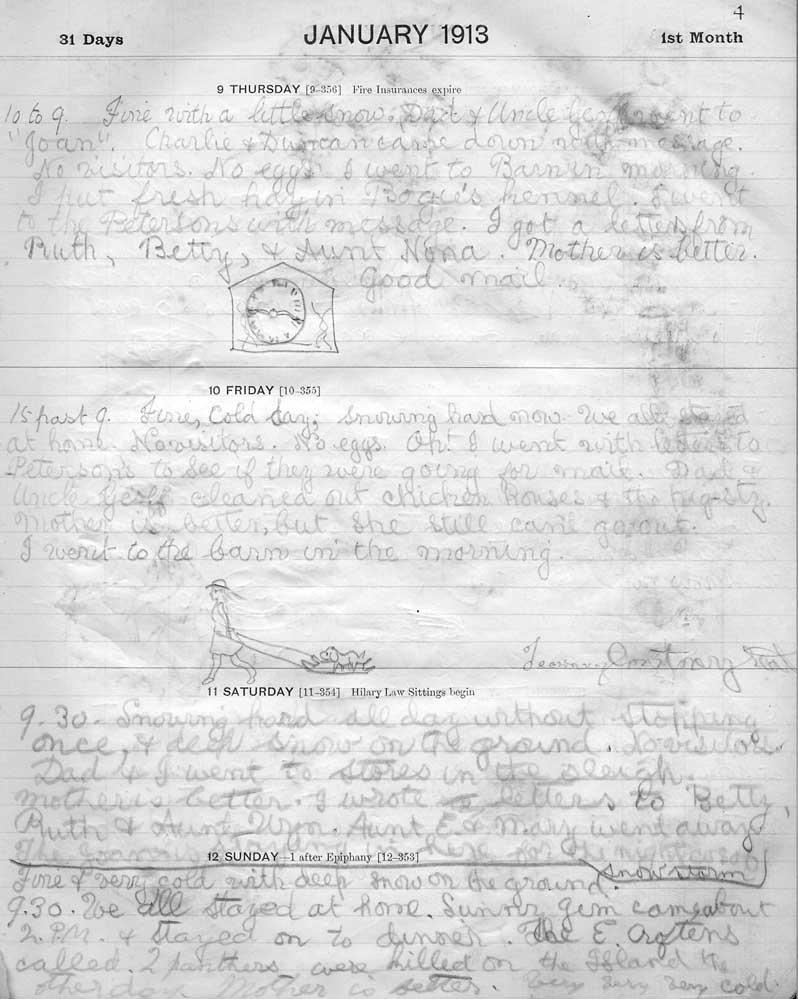 4
31 Days JANUARY 1913 1st Month
9 THURSDAY [9-356] Fire Insurances expire
10 to 9. Fine with a little snow. Dad & Uncle went to
"Joan". Charlie & Duncan came down with message.
No visitors. No eggs. I went to Barn in morning.
I put fresh hay in Bogie's kennel. I went
to the Petersons with message. I got a letter from
Ruth, Betty, & Aunt Nona. Mother is better.
Good mail.
10 FRIDAY [10-355]
15 past 9. Fine, cold day; snowing hard now. We all stayed
at home. No visitors. No eggs. Oh! I went with letters to
Petersons to see if they were going for mail. Dad &
Uncle Geoff cleaned out chicken houses & the pig-sty.
Mother is better, but she still can't go out.
I went to the barn in the morning.
11 SATURDAY [11-354] Hilary Law Sittings begin
9.30. Snowing hard all day without stopping
once, & deep snow on the ground. No visitors.
Dad & I went to stores in the sleigh.
Mother is better. I wrote letters to Betty,
Ruth & Aunt Wyn. Aunt E & Mary went away
for the night
12 SUNDAY—1 after Epiphany [12-353]
snowstorm
Fine & very cold with deep snow on the ground.
9.30. We all stayed at home. Sunny Jim came about
2. P.M. & stayed on to dinner. The E. Croftons
called. 2 panthers were killed on the Island the
other day. Mother is better. Very very very cold.